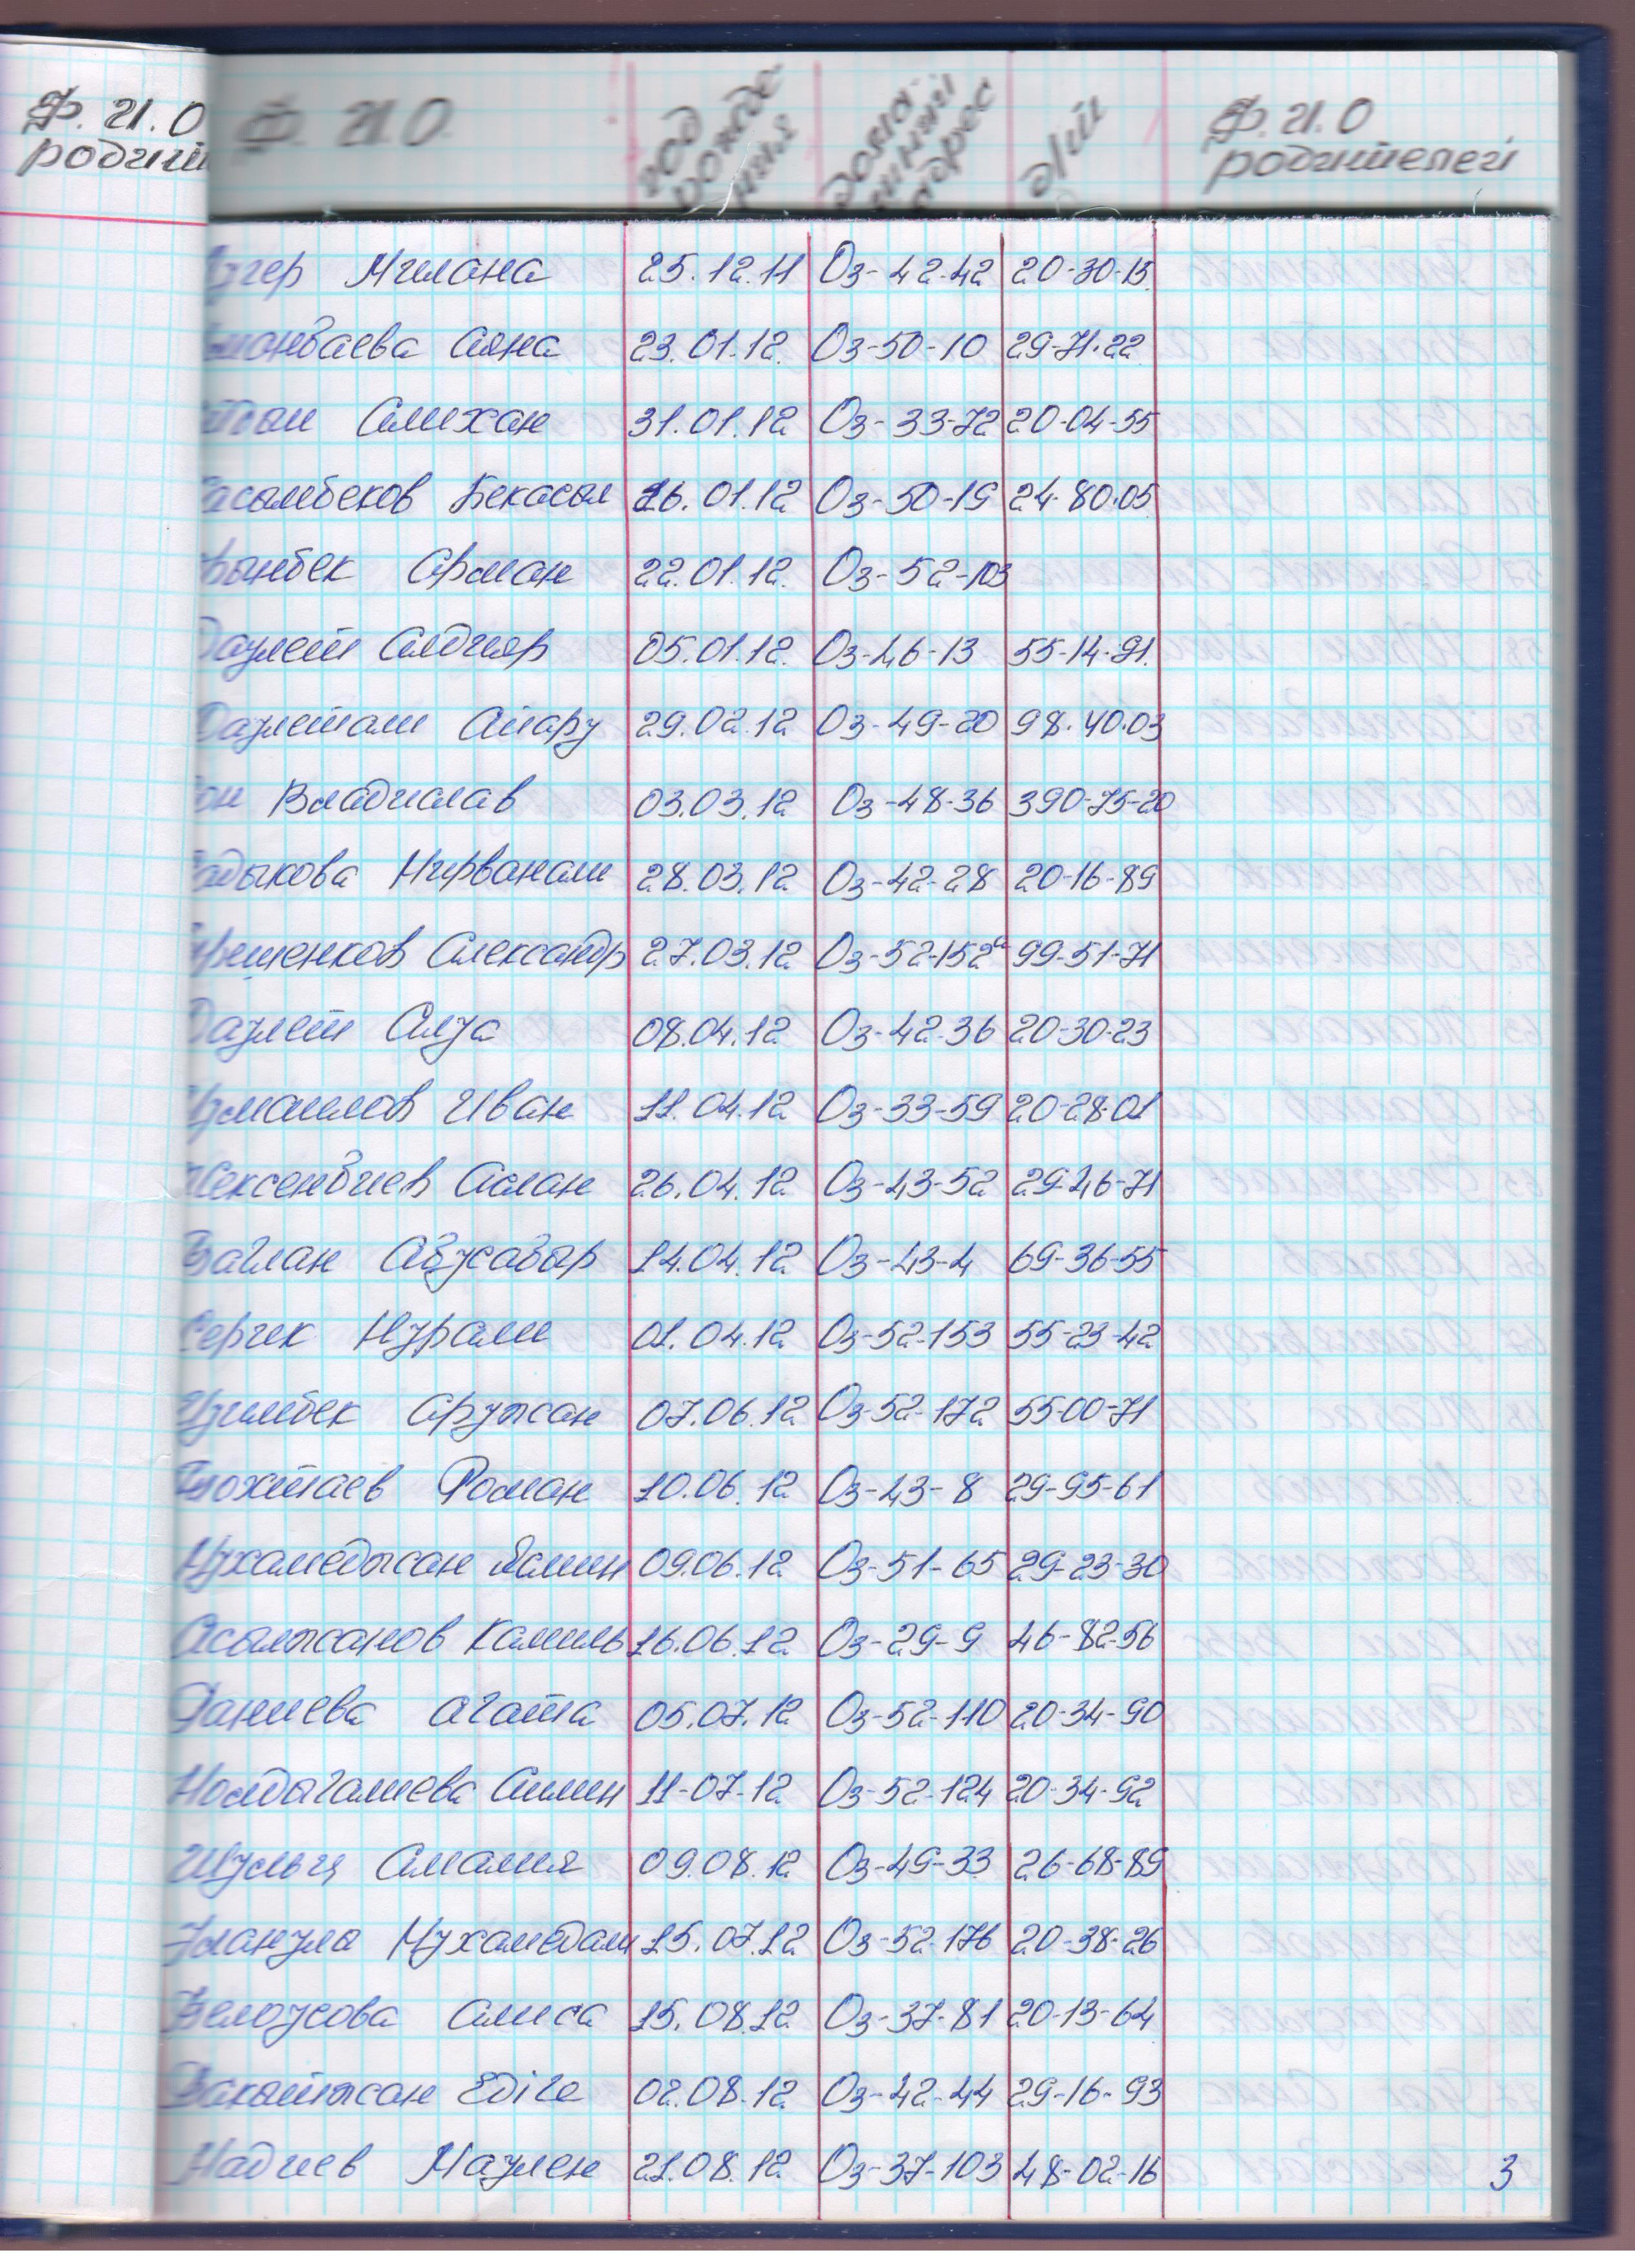 Ф. И. О
родит
Ф. И. О. год рождения домашний адрес д/т Ф. И. О родителей
Милана 25.12.11 Оз-42-42 20-30-15
Аяна 23.01.12. Оз-50-10 29-71-22
Алихан 31.01.12 Оз-33-72 20-04-55
Касымбеков Бекасыл 16.01.12 Оз-50-19 24-80-05
Арман 22.01.12. Оз-52-103
Даулет Алдияр 05.01.12. Оз-46-13 55-14-91.
Даулетали Айару 29.02.12 Оз-49-20 98-40-03
Владислав 03.03.12 Оз-48-36 390-75-20
Садыкова Нирванам 28.03.12 Оз-42-28 20-16-89
Александр 27.03.12 Оз-52-152а 99-51-71
Даулет Алуа 08.04.12 Оз-42-36 20-30-23
Иван 11.04.12 Оз-33-59 20-28-01
Сексенбиев Аслан 26.04.12 Оз-43-52 29-46-71
Баглан Абусабыр 14.04.12 Оз-43-4 69-36-55
Серик Нурали 01.04.12 Оз-52-153 55-23-42
Аружан 07.06.12 Оз-52-172 55-00-71
Роман 10.06.12 Оз-43-8 29-95-61
Мухамеджан Ясмин 09.06.12 Оз-51-65 29-23-30
Асылжанов Камиль 16.06.12 Оз-29-9 46-82-56
Ганиева Агата 05.07.12 Оз-52-110 20-34-90
Молдагалиева Амин 11-07-12 Оз-52-124 20-34-92
Шульц Амалия 09.08.12 Оз-49-33 26-68-89
Мухамедали 15.07.12 Оз-52-176 20-38-26
Белоусова Алиса 15.08.12 Оз-37-81 20-13-64
Бакытжан Едіге 02.08.12 Оз-42-44 29-16-93
Надиев Маулен 21.08.12 Оз-37-103 48-02-16
3